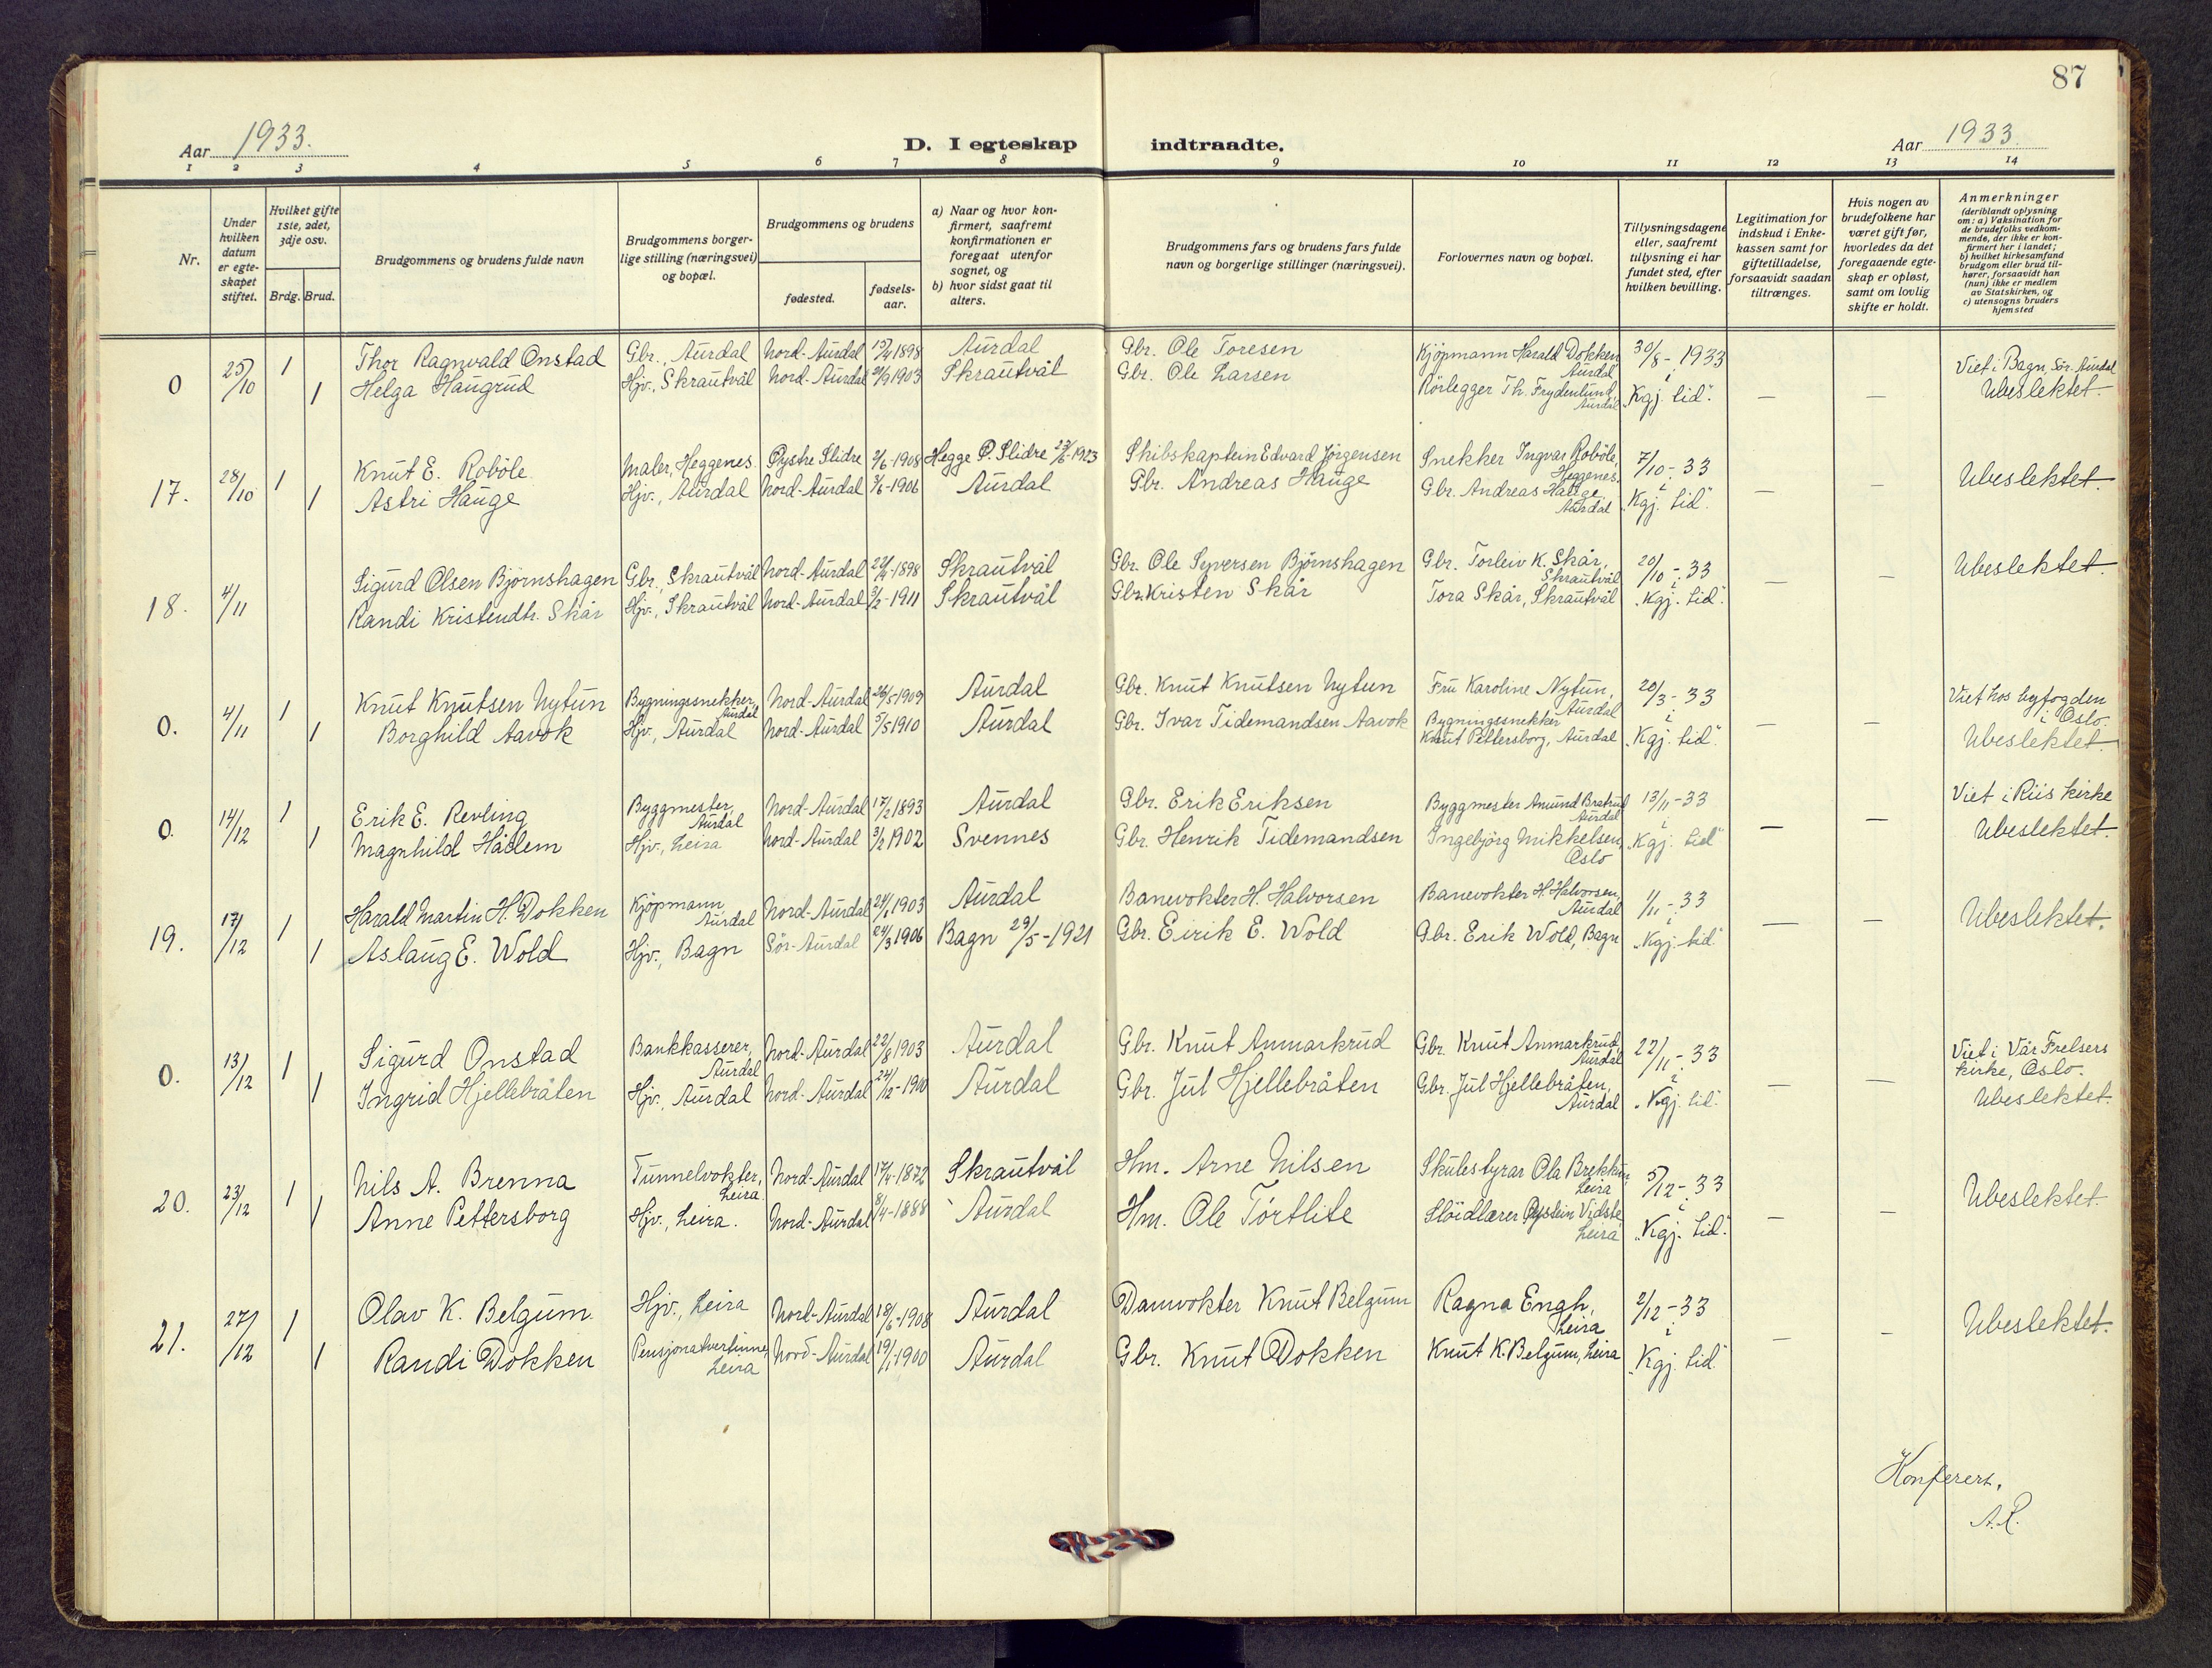 87
Aar 1933.
D. I egteskap indtraadte.
Aar 1933.
1 2 3 4 5 6 7 8 9 10 11 12 13 14
Nr.
Under hvilken datum er egte-skapet stiftet.
Hvilket gifte 1ste, 2det, 3dje osv.
Brdg. Brud.
Brudgommens og brudens fulde navn
Brudgommens borger-lige stilling (næringsvei) og bopæl.
Brudgommens og brudens
fødested.
fødsels-aar.
a) Naar og hvor kon-firmert, saafremt konfirmationen er foregaat utenfor sognet, og
b) hvor sidst gaat til alters.
Brudgommens fars og brudens fars fulde navn og borgerlige stillinger (næringsvei).
Forlovernes navn og bopæl.
Tillysningsdagene eller, saafremt tillysning ei har fundet sted, efter hvilken bevilling.
Legitimation for indskud i Enke-kassen samt for giftetilladelse, forsaavidt saadan tiltrænges.
Hvis nogen av brudefolkene har været gift før, hvorledes da det foregaaende egte-skap er opløst, samt om lovlig skifte er holdt.
Anmerkninger
(deriblandt oplysning om: a) Vaksination for de brudefolks vedkom-mende, der ikke er kon-firmert her i landet; b) hvilket kirkesamfund brudgom eller brud til-hører, forsaavidt han (hun) ikke er medlem av Statskirken, og c) utensogns bruders hjemsted
0 25/10 1 Thor Ragnvald Onstad Gbr., Aurdal Nord-Aurdal 1898 Aurdal Gbr. Ole Toresen Kjøpmann Harald Dokken Aurdal 30/8 - 1933 Viet i Bagn, Sør-Aurdal
1 Helga Haugrud Hjv., Skrautvål Nord-Aurdal 1903 Skrautvål Gbr. Ole Larsen Rørlegger Th. Frydenlund, Aurdal i "Kgj. tid". — — Ubeslektet.
17. 28/10 1 Knut E. Robøle Maler, Heggenes. Øystre Slidre 2/6-1908 Hegge Ø. Slidre 1923 Skibskaptein Edvard Jørgensen Snekker Ingvar Robøle, Heggenes. 7/10 - 33
1 Astri Hauge Hjv., Aurdal Nord-Aurdal 3/6-1906 Aurdal Gbr. Andreas Hauge Gbr. Andreas Hauge, Aurdal i "Kgj. tid". — — Ubeslektet.
18. 4/11 Sigurd Olsen Bjørnshagen Gbr., Skrautvål Nord-Aurdal 1898 Skrautvål Gbr. Ole Syversen Bjørnshagen Gbr. Torleiv K. Skår, Skrautvål 20/10 - 33
Randi Kristendtr. Skår Hjv., Skrautvål Nord-Aurdal 1911 Skrautvål Gbr. Kristen Skår Tora Skår, Skrautvål i "Kgj. tid". — — Ubeslektet.
0. 4/11 1 Knut Knutsen Nytun Bygningssnekker, Aurdal Nord-Aurdal 26/5 1909 Aurdal Gbr. Knut Knutsen Nytun Fru Karoline Nytun, Aurdal 20/3 - 33 Viet hos byfogden i Oslo.
1 Borghild Aavok Hjv., Aurdal Nord-Aurdal 5/5 1910 Aurdal Gbr. Ivar Tidemandsen Aavok Bygningssnekker Knut Pettersborg, Aurdal i "Kgj. tid". — — Ubeslektet.
0. 14/12 1 Erik E. Revling Byggmester, Aurdal Nord-Aurdal 17/2 1893 Aurdal Gbr. Erik Eriksen Byggmester Amund Bratrud Aurdal 13/11 - 33 Viet i Riis kirke
1 Magnhild Hadlem Hjv., Leira Nord-Aurdal 3/2 1902 Svennes Gbr. Henrik Tidemandsen Ingebjørg Mikkelsen, Oslo i "Kgj. tid" — — Ubeslektet.
19. 17/12 1 Harald Martin H. Dokken Kjøpmann Aurdal Nord-Aurdal 1903 Aurdal Banevokter H. Halvorsen Banevokter H. Halvorsen, Aurdal 1/11 - 33
1 Aslaug E. Wold Hjv., Bagn Sør-Aurdal 24/3 1906 Bagn 29/5-1921 Gbr. Eirik E. Wold Gbr. Erik Wold, Bagn i "Kgj. tid" — — Ubeslektet.
0. 13/12 1 Sigurd Onstad Bankkasserer, Aurdal Nord-Aurdal 22/8 1903 Aurdal Gbr. Knut Anmarkrud Gbr. Knut Anmarkrud, Aurdal 22/11 - 33 Viet i Vår Frelsers kirke, Oslo.
1 Ingrid Hjellebråten Hjv., Aurdal Nord-Aurdal Aurdal Gbr. Jul Hjellebråten Gbr. Jul Hjellebråten, Aurdal i "Kgj. tid". — — Ubeslektet.
20. 23/12 1 Nils A. Brenna Tunnelvokter, Leira. Nord-Aurdal 17/4-1872 Skrautvål Hm. Arne Nilsen Skulestyrar Ola Brekkun, Leira 5/12 - 33
1 Anne Pettersborg Hjv., Leira. Nord-Aurdal 8/4-1888 Aurdal Hm. Ole Tørtlite Sløidlærer Øystein Vidste Leira i "Kgj. tid". — — Ubeslektet.
21. 27/12 1 Olav K. Belgum Hjv., Leira Nord-Aurdal 18/6-1908 Aurdal Damvokter Knut Belgum Ragna Engh, Leira 2/12 - 33
1 Randi Dokken Pensjonatvertinne, Leira Nord-Aurdal 19/1 1900 Aurdal Gbr. Knut Dokken Knut K. Belgum, Leira i "Kgj. tid" — — Ubeslektet.
Konferert.
A.R.